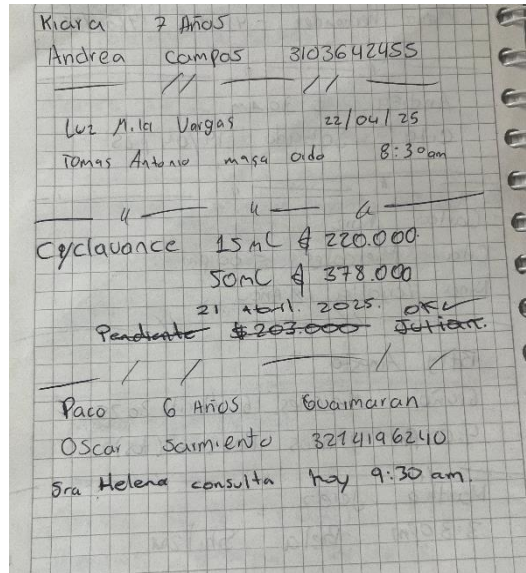 Kiara 7 Años
Andrea Campos 3103642455
Luz Mila Vargas 22/04/25
Tomas Antonio masa oido 8:30am
Cyclavance 15mL $ 220.000
50mL $ 378.000
21 Abril. 2025. OK
Pendiente $203.000 Julian.
Paco 6 Años Guaimaran
Oscar Sarmiento 3214196240
Sra Helena consulta hoy 9:30 am.